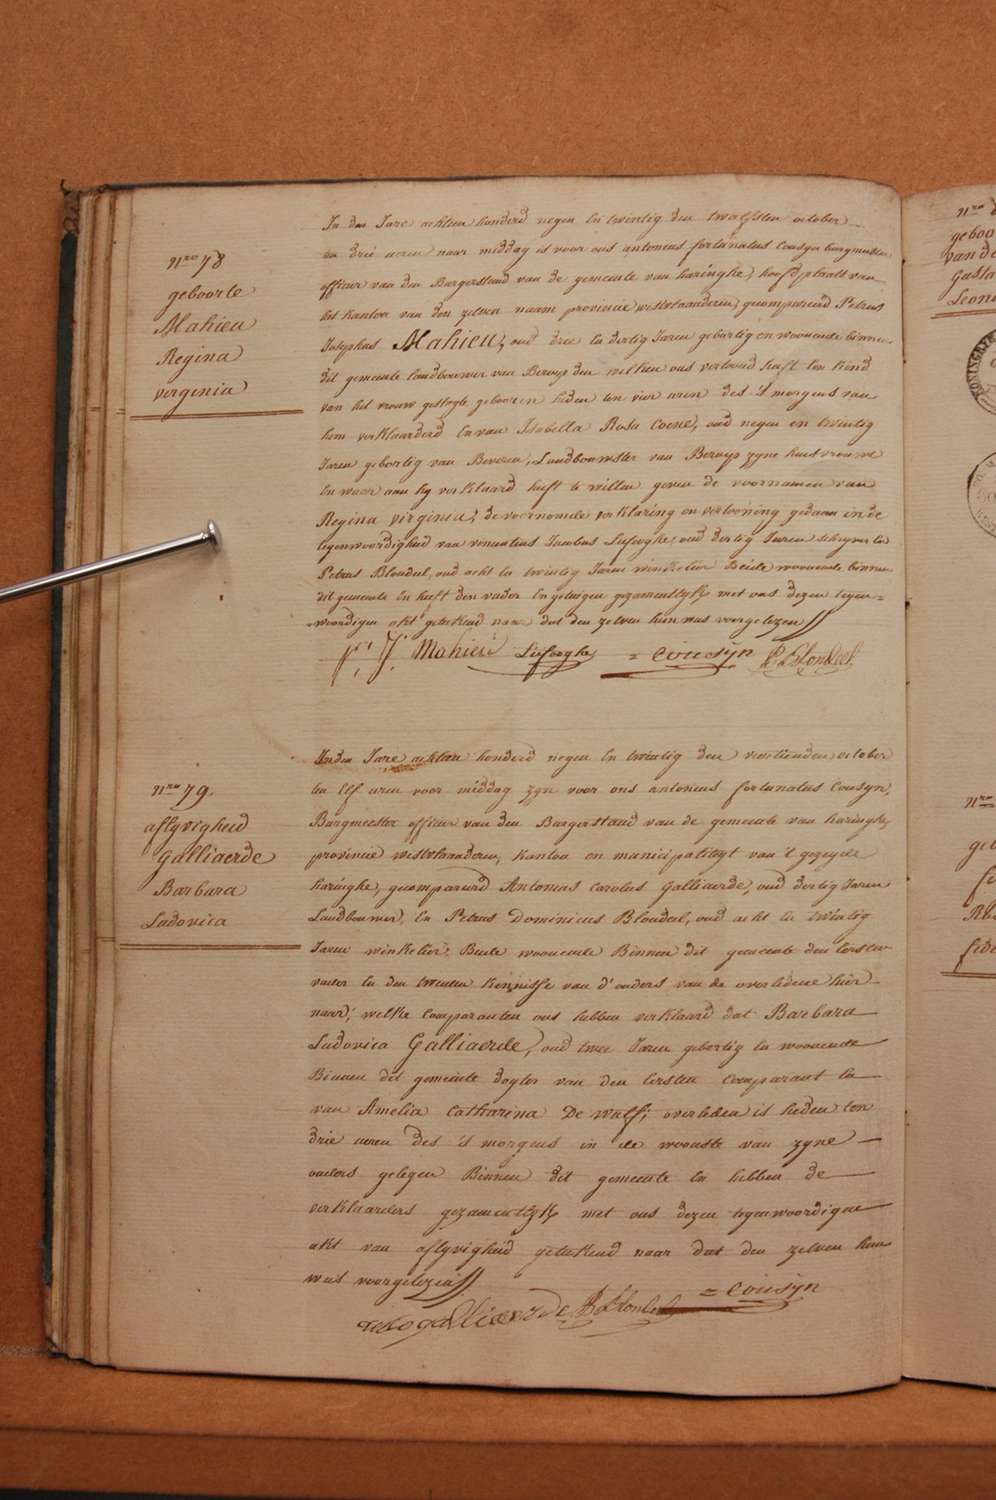 nro 78
geboorte
Mahieu
Regina
virginia
In den Jare achtien honderd negen en twintig den twalfsten october
ten drie uren naer middag is voor ons antonius fortunatus Cousyn burgmeester
officier van den Burgerstand van de gemeente van haringhe, hoofdplaats van
het kanton van den zelven naam provincie westvlaanderen, gecompareerd Petrus
Josephus Mahieu, oud drie en dertig Jaren gebortig en woonende binnen
dit gemeente landbouwer van Beroep den welken ons vertoond heeft een kind
van het vrouw geslagte gebooren heden ten vier uren des 's morgens van
hem verklaarderd en van Isabella Rosa Coene, oud negen en twintig
Jaren gebortig van Beveren, Landbouwster van Beroep zyne huisvrouwe
en waar aan hy verklaard heeft te willen geven de voornamen van
Regina virginia; de voornomde verklaring en vertooning gedaan in de
tegenwoordigheid van Jacobus Lefeughe, oud dertig Jaren schryver en
Petrus Blondeel, oud acht en twintig Jaren winkelier Beide woonende binnen
dit gemeente en heeft den vader en getuigen gezamentlyk met ons dezen tegen=
woordigen akt getekend naar dat den zelven hun was voorgelezen //
Mahieu = Cousyn Blondeel
nro 79.
aflyvigheid
Galliaerde
Barbara
Ludovica
In den Jare achtien honderd negen en twintig den viertienden october
ten elf uren voor middag zyn voor ons antonius fortunatus Cousyn,
Burgmeester officier van den Burgerstand van de gemeente van haringhe,
provincie westvlaanderen, kanton en municipaliteyt van 't gezeyde
haringhe, gecompareerd Antonius carolus Galliaerde, oud dertig Jaren
Landbouwer, en Petrus Dominicus Blondeel, oud acht en twintig
Jaren winkelier, Beide woonende Binnen dit gemeente den eersten
vader en den tweeden kennisse van d'ouders van de overledene hier
naar; welke comparanten ons hebben verklaard dat Barbara
Ludovica Galliaerde, oud twee Jaren gebortig en woonende
Binnen dit gemeente dogter van den eersten comparant en
van Amelia Catharina De wulf; overleden is heden ten
drie uren des 's morgens in de woonste van zyne
ouders gelegen Binnen dit gemeente en hebben de
verklaarders gezamentlyk met ons dezen tegenwoordigen
akt van aflyvigheid getekend naar dat den zelven hun
was voorgelezen //
galliaerde Blondeel = Cousyn